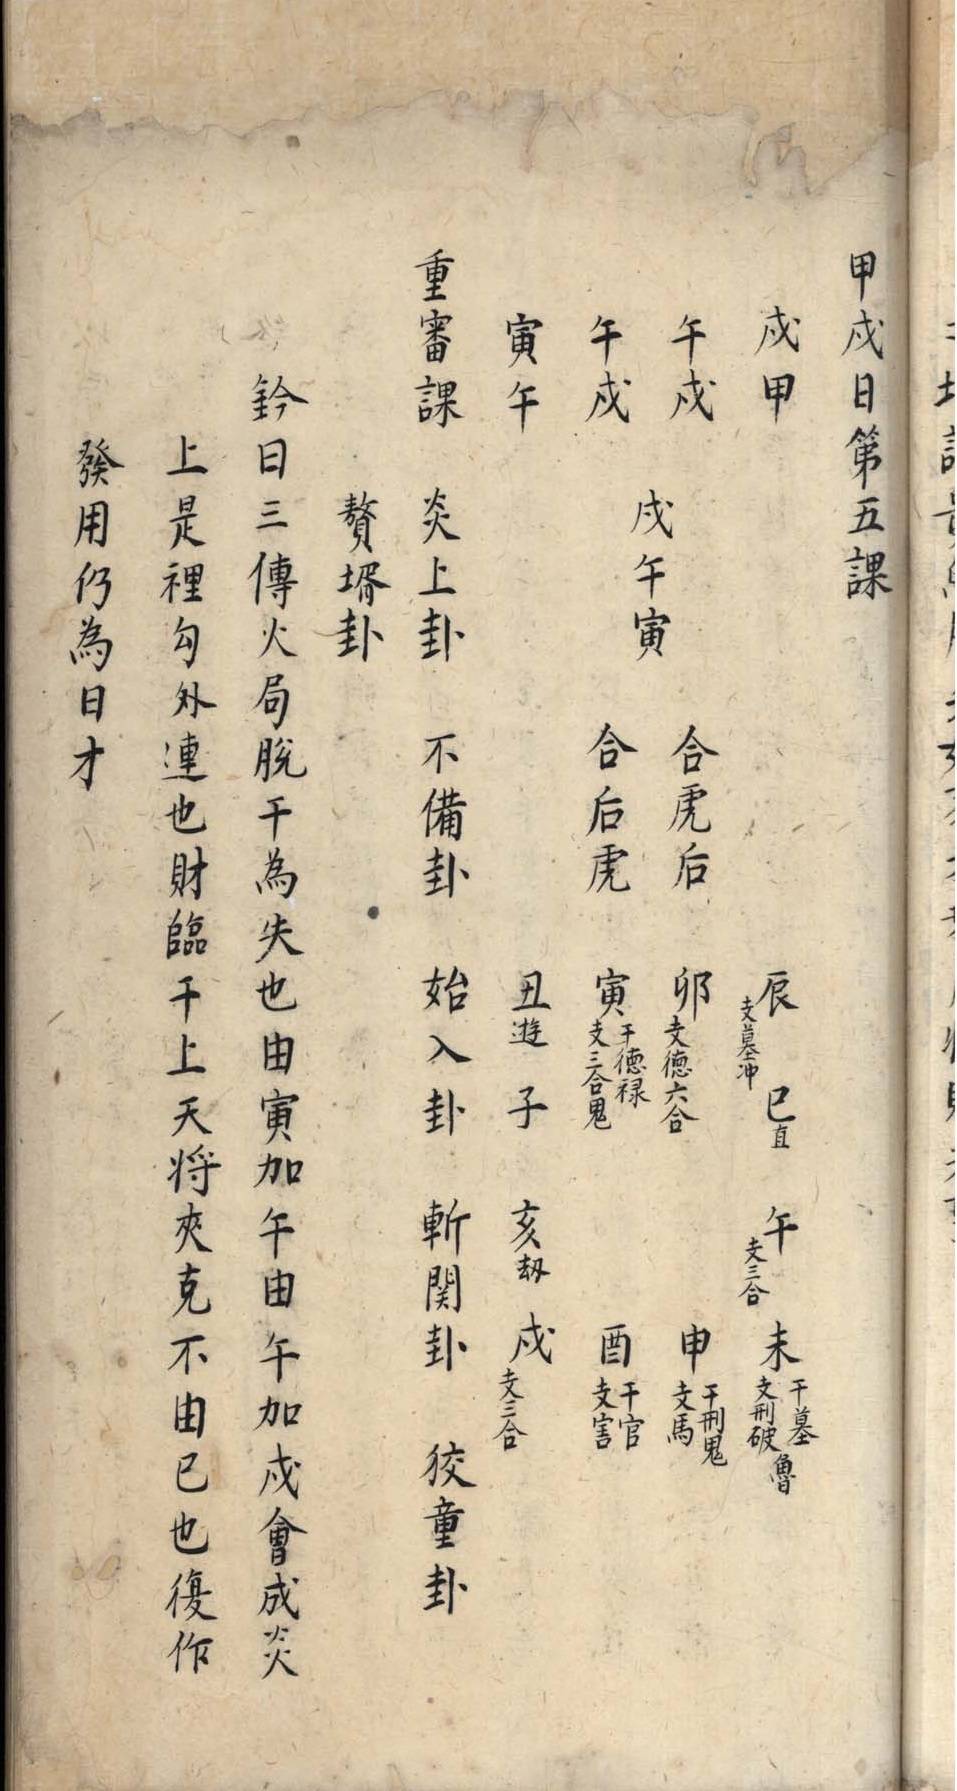 甲戌日第五課
戌甲 辰支墓冲 巳直 午支三合 未干墓支刑破魯
午戌 合虎后 卯支德六合 申干刑鬼支馬
戌午寅
午戌 合后虎 寅干德禄支三合鬼 酉干官支害
寅午 丑遊 子 亥刼 戌支三合
重審課 炎上卦 不備卦 始入卦 斬関卦 狡童卦
贅壻卦
鈐曰三傳火局脫干為失也由寅加午由午加戌會成炎
上是裡勾外連也財臨干上天将夾克不由已也復作
發用仍為日才